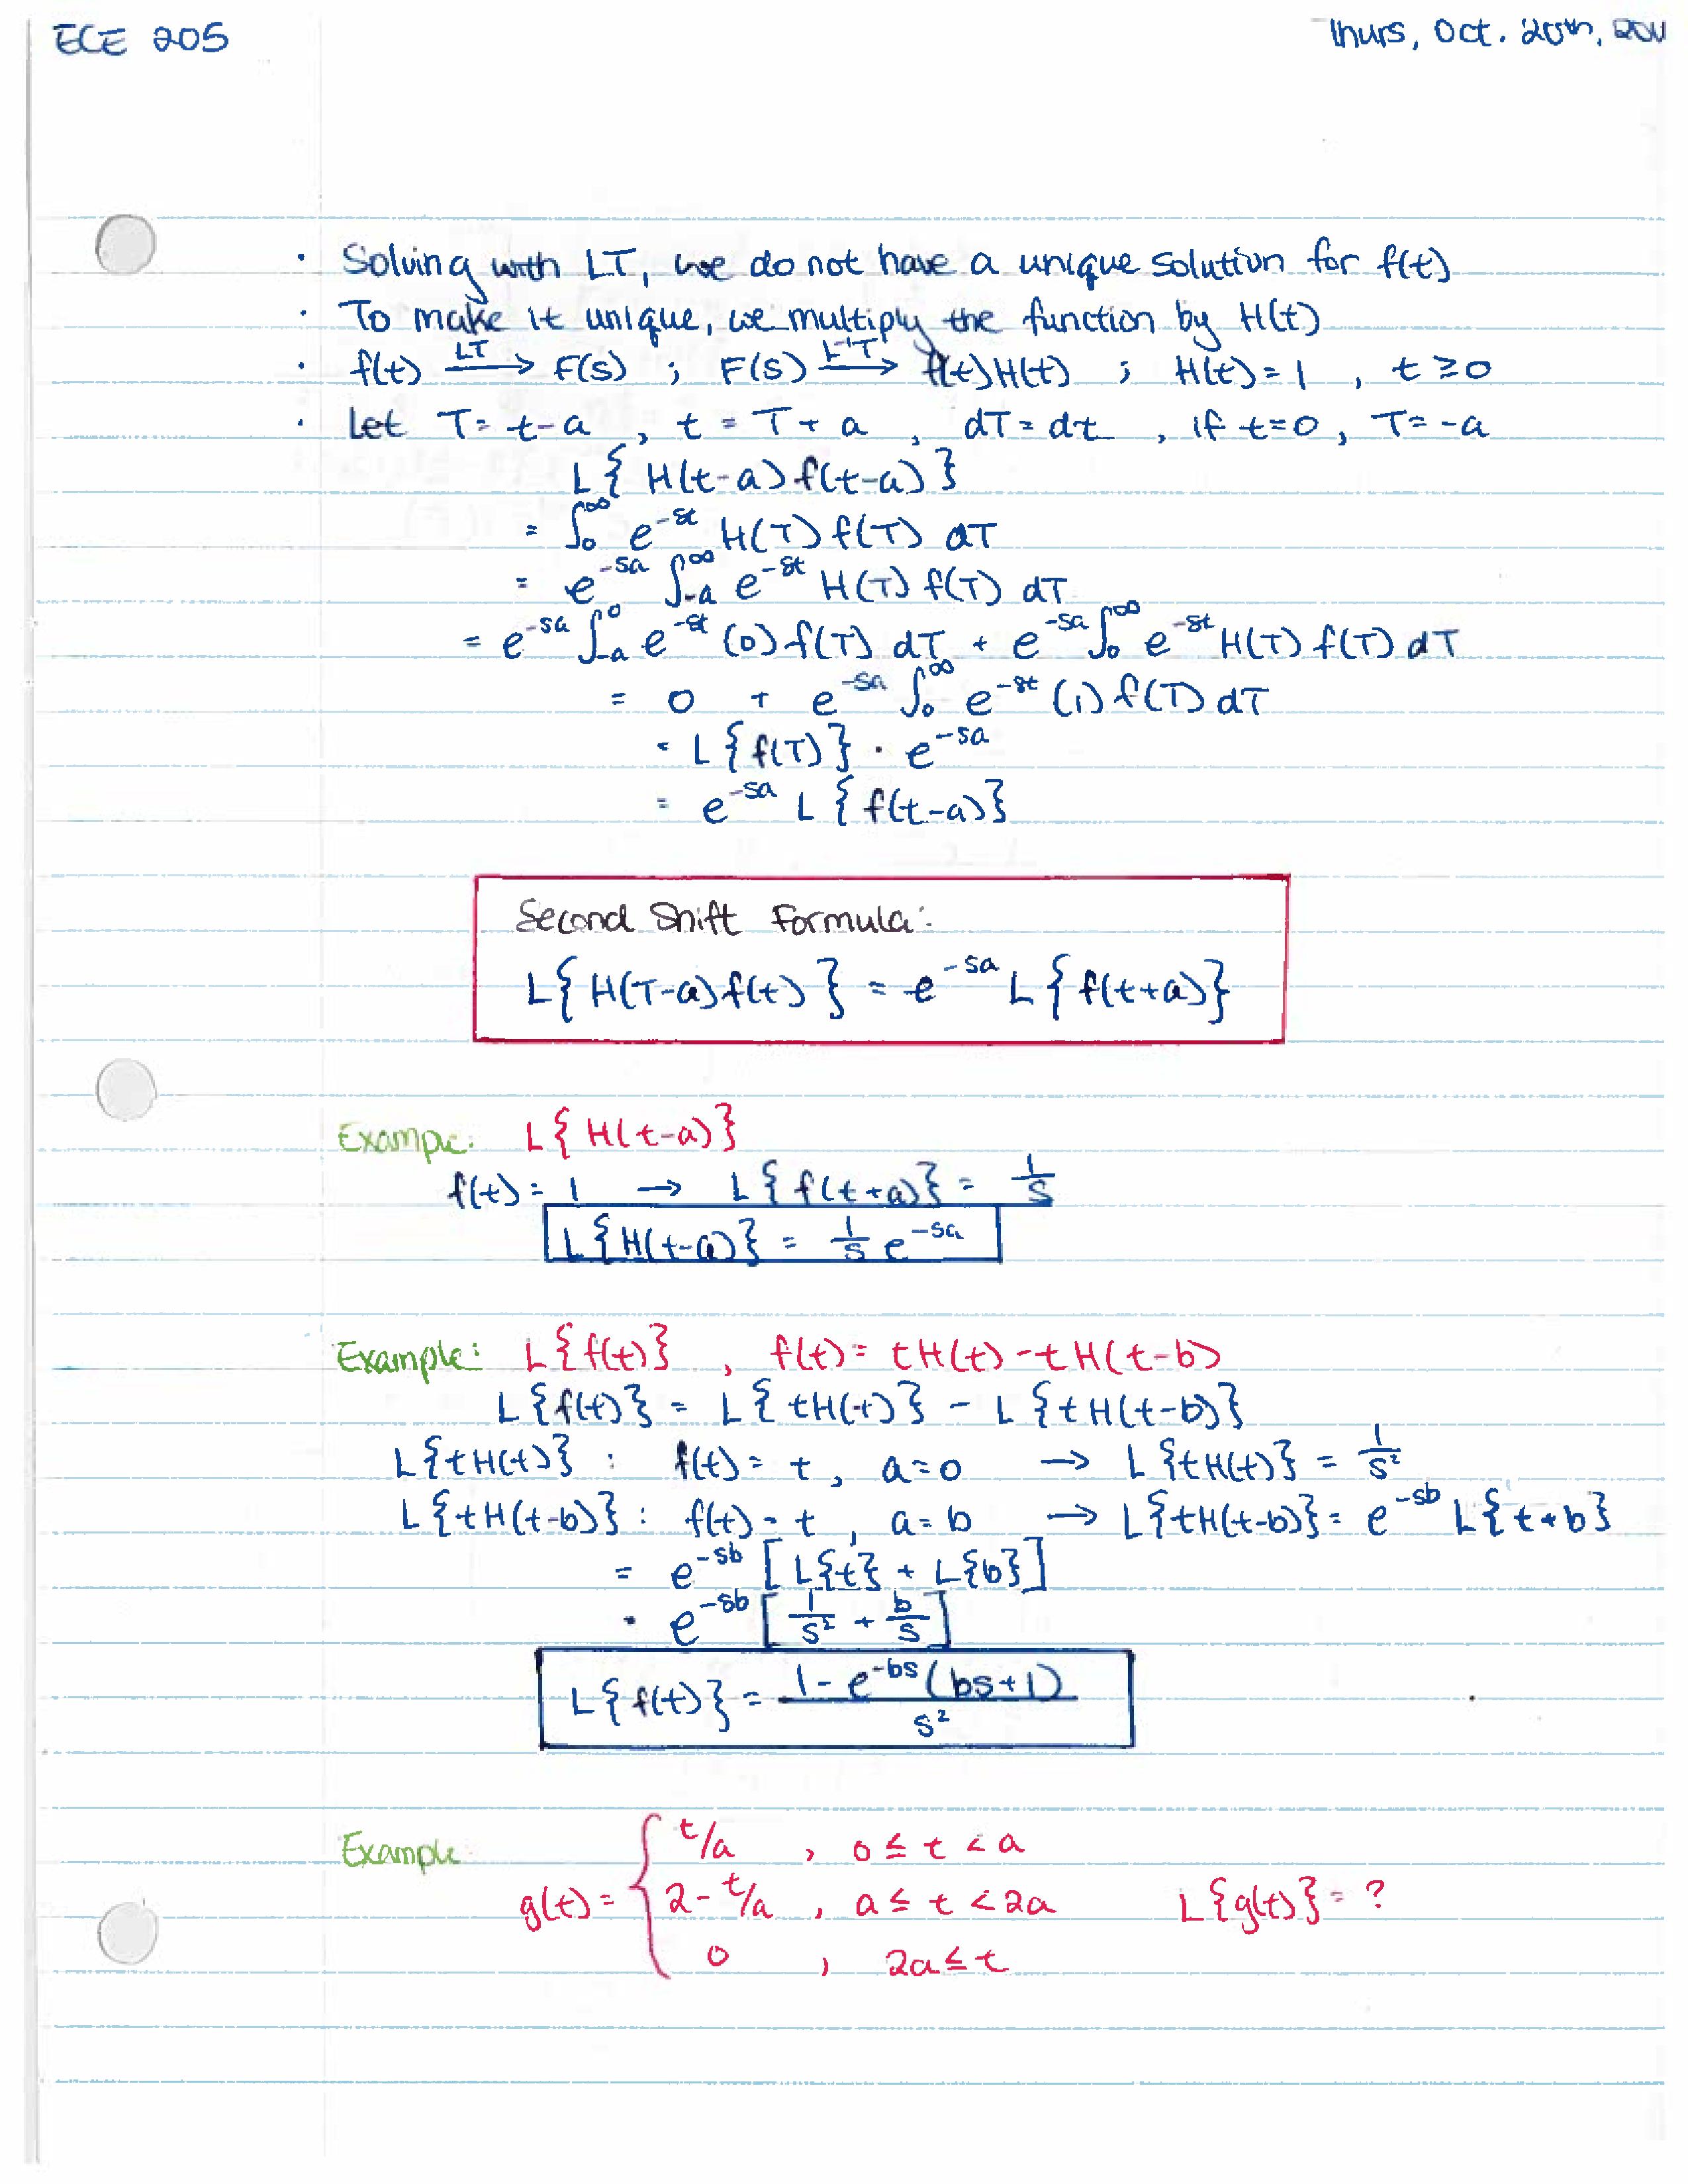 ECE 205
Thurs, Oct. 20th, 2011
· Solving with LT, we do not have a unique solution for f(t)
· To make it unique, we multiply the function by H(t)
· f(t) —LT→ F(s) ; F(s) —L⁻¹T→ f(t)H(t) ; H(t)=1 , t ≥ 0
· Let T= t-a , t = T + a , dT = dt , if t=0 , T= -a
L{ H(t-a) f(t-a) }
= ∫₀^∞ e^-st H(T) f(T) dT
= e^-sa ∫_-a^∞ e^-st H(T) f(T) dT
= e^-sa ∫_-a^0 e^-st (0) f(T) dT + e^-sa ∫₀^∞ e^-st H(T) f(T) dT
= 0 + e^-sa ∫₀^∞ e^-st (1) f(T) dT
= L{f(T)} · e^-sa
= e^-sa L{f(t-a)}
Second Shift Formula:
L{ H(T-a) f(t) } = e^-sa L{ f(t+a)}
Example: L{ H(t-a)}
f(t) = 1 → L{f(t+a)} = 1/s
L{H(t-a)} = 1/s e^-sa
Example: L{f(t)} , f(t) = tH(t) - tH(t-b)
L{f(t)} = L{tH(t)} - L{tH(t-b)}
L{tH(t)} : f(t) = t, a=0 → L{tH(t)} = 1/s²
L{tH(t-b)} : f(t) = t , a = b → L{tH(t-b)} = e^-sb L{t+b}
= e^-sb [L{t} + L{b}]
= e^-sb [1/s² + b/s]
L{f(t)} = (1 - e^-bs (bs+1))/s²
Example
g(t) = { t/a , 0 ≤ t < a
2 - t/a , a ≤ t < 2a L{g(t)} = ?
0 , 2a ≤ t